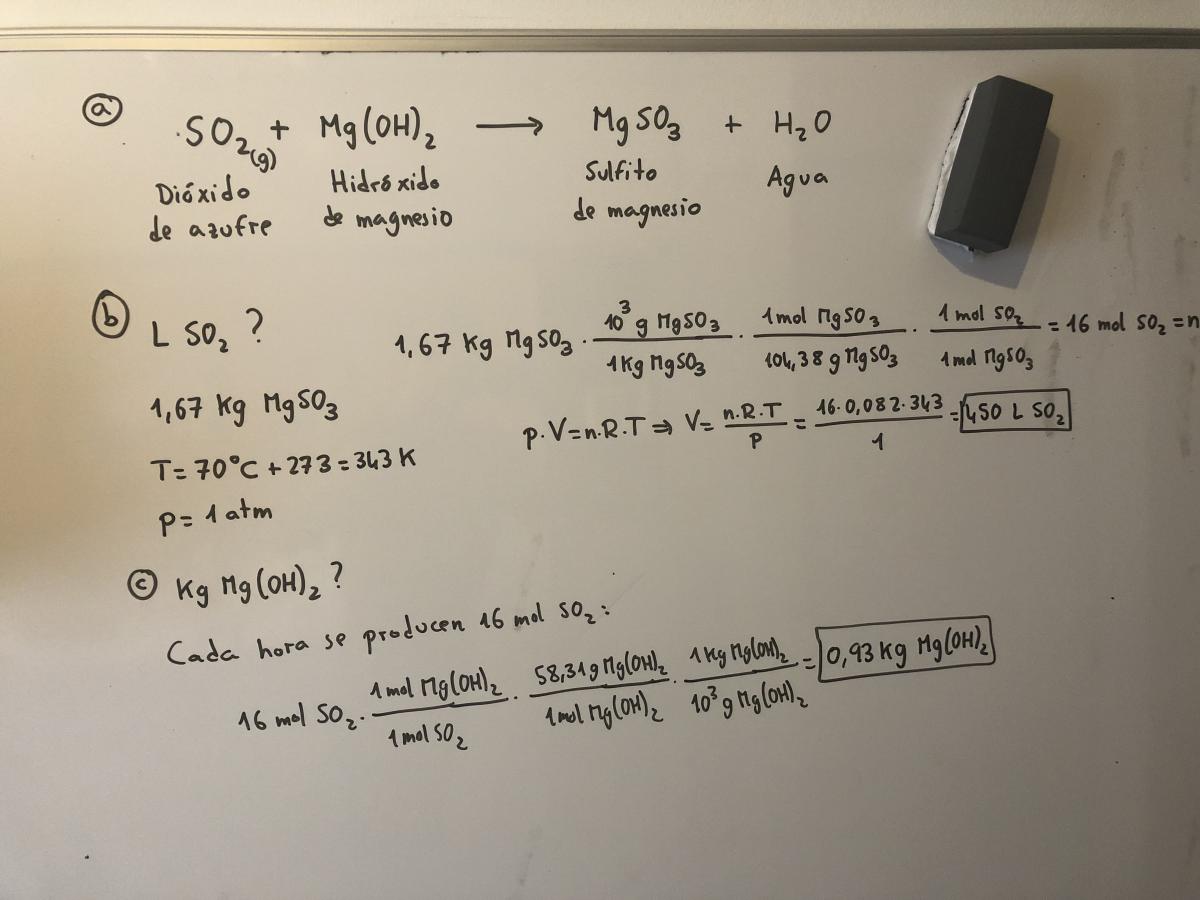 a SO₂(g) + Mg(OH)₂ ⟶ MgSO₃ + H₂O
Dióxido de azufre
Hidróxido de magnesio
Sulfito de magnesio
Agua
b L SO₂ ?
1,67 Kg MgSO₃
T = 70°C + 273 = 343 K
p = 1 atm
1,67 Kg MgSO₃ · (10³ g MgSO₃ / 1 Kg MgSO₃) · (1 mol MgSO₃ / 104,38 g MgSO₃) · (1 mol SO₂ / 1 mol MgSO₃) = 16 mol SO₂ = n
p·V = n.R.T ⇒ V = n.R.T / p = 16·0,082·343 / 1 = 450 L SO₂
c Kg Mg(OH)₂ ?
Cada hora se producen 16 mol SO₂:
16 mol SO₂ · (1 mol Mg(OH)₂ / 1 mol SO₂) · (58,31 g Mg(OH)₂ / 1 mol Mg(OH)₂) · (1 Kg Mg(OH)₂ / 10³ g Mg(OH)₂) = 0,93 Kg Mg(OH)₂